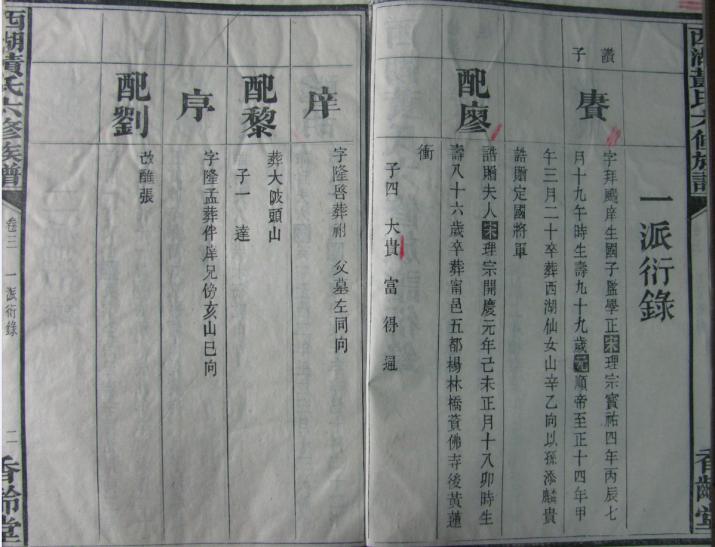 西湖黃氏六修族譜
香齡堂
一派衍錄
讚子
賡
字拜颺庠生國子監學正宋理宗寶祐四年丙辰七
月十九午時生壽九十九歲元順帝至正十四年甲
午三月二十卒葬西湖仙女山辛乙向以孫添麟貴
誥贈定國將軍
配廖
誥贈夫人宋理宗開慶元年己未正月十八卯時生
壽八十六歲卒葬甯邑五都楊林橋資佛寺後黃蓮
衝
子四 大貴 富 得 通
庠
字隆啓葬祔 父墓左同向
配黎
葬大陂頭山
子一 達
序
字隆孟葬伴庠兄傍亥山巳向
配劉
改醮張
西湖黃氏六修族譜
卷三 一派衍錄
二
香齡堂